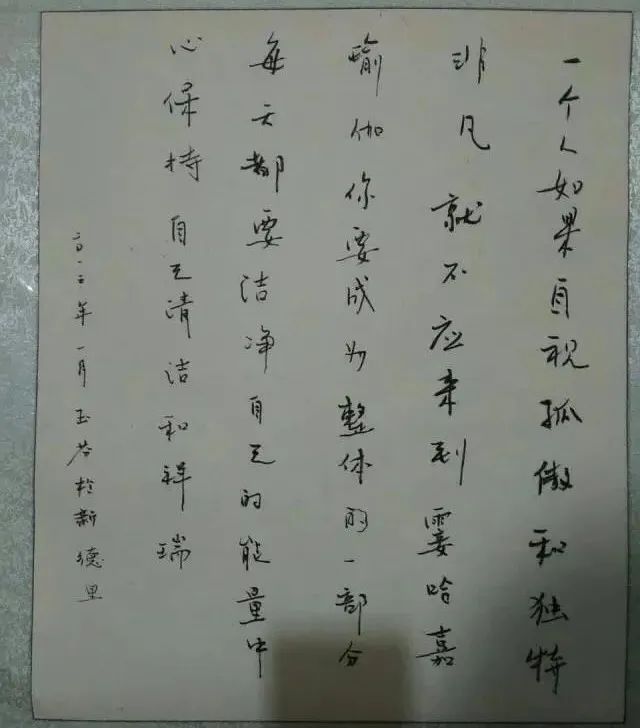 一个人如果自视孤傲和独特
非凡就不应来到霎哈嘉
瑜伽你要成为整体的一部分
每天都要洁净自己的能量中
心保持自己清洁和祥瑞
二〇一二年一月玉於新德里